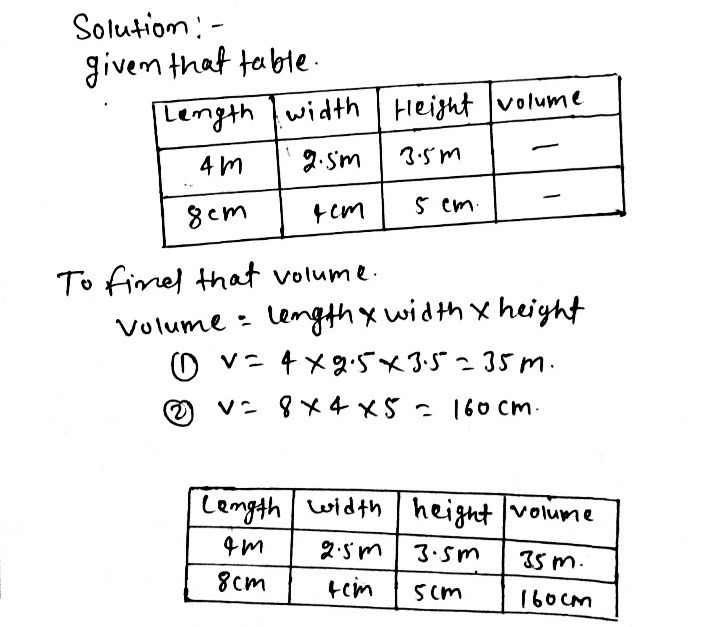 Solution:-
given that table.
Length width Height volume
4m 2.5m 3.5m —
8cm 4cm 5 cm. —
To find that volume.
Volume = length x width x height
① V = 4 x 2.5 x 3.5 = 35 m.
② V = 8 x 4 x 5 = 160 cm.
Length width height volume
4m 2.5m 3.5m 35m.
8cm 4cm 5cm 160cm